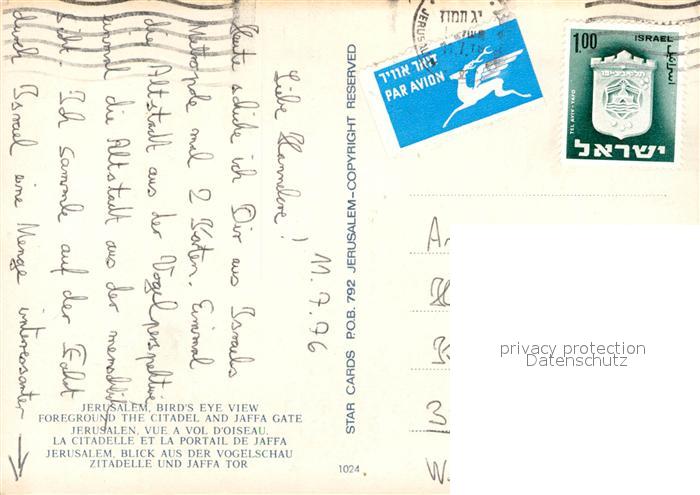 JERUSALEM
יג תמוז
דואר אוויר
PAR AVION
1.00
ISRAEL
اسرائيل
TEL AVIV-YAFO
ישראל
11.7.76
Liebe Hannelore!
Heute schicke ich Dir aus Israels
Metropole mal 2 Karten. Einmal
die Altstadt aus der Vogelperspektive
einmal die Altstadt aus der menschlich
Sicht. Ich sammle auf der Fahrt
durch Israel eine Menge interessanter →
STAR CARDS P.O.B. 792 JERUSALEM—COPYRIGHT RESERVED
JERUSALEM, BIRD'S EYE VIEW
FOREGROUND THE CITADEL AND JAFFA GATE
JERUSALEN, VUE A VOL D'OISEAU.
LA CITADELLE ET LA PORTAIL DE JAFFA
JERUSALEM, BLICK AUS DER VOGELSCHAU
ZITADELLE UND JAFFA TOR
1024
3
W.
privacy protection
Datenschutz